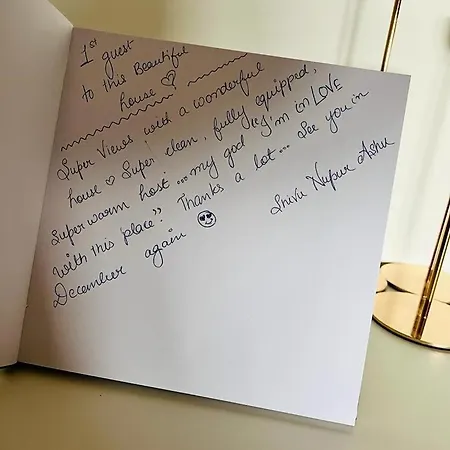 1st guest
to this Beautiful
house ♡
Super Views with a wonderful
house ♡ Super clean, fully equipped,
Super warm host ... my god "I'm in LOVE
with this place". Thanks a lot ... See you in
December again 😍
Shivu Nupur Ashu